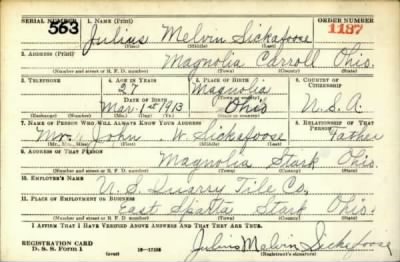 SERIAL NUMBER 1. NAME (Print) ORDER NUMBER
563 Julius Melvin Sickafoose 1187
(First) (Middle) (Last)
2. ADDRESS (Print)
Magnolia Carroll Ohio.
(Number and street or R. F. D. number) (Town) (County) (State)
3. TELEPHONE 4. AGE IN YEARS 5. PLACE OF BIRTH 6. COUNTRY OF CITIZENSHIP
27 Magnolia
(Town or county)
DATE OF BIRTH
May 1st 1913 Ohio U.S.A.
(Exchange) (Number) (Mo.) (Day) (Yr.) (State or country)
7. NAME OF PERSON WHO WILL ALWAYS KNOW YOUR ADDRESS 8. RELATIONSHIP OF THAT PERSON
Mr. John W. Sickafoose Father
(Mr., Mrs., Miss) (First) (Middle) (Last)
9. ADDRESS OF THAT PERSON
Magnolia Stark Ohio.
(Number and street or R. F. D. number) (Town) (County) (State)
10. EMPLOYER'S NAME
U.S. Quarry Tile Co.
11. PLACE OF EMPLOYMENT OR BUSINESS
East Sparta Stark Ohio.
(Number and street or R. F. D. number) (Town) (County) (State)
I AFFIRM THAT I HAVE VERIFIED ABOVE ANSWERS AND THAT THEY ARE TRUE.
REGISTRATION CARD
D. S. S. Form 1 (over) Julius Melvin Sickafoose
(Registrant's signature)